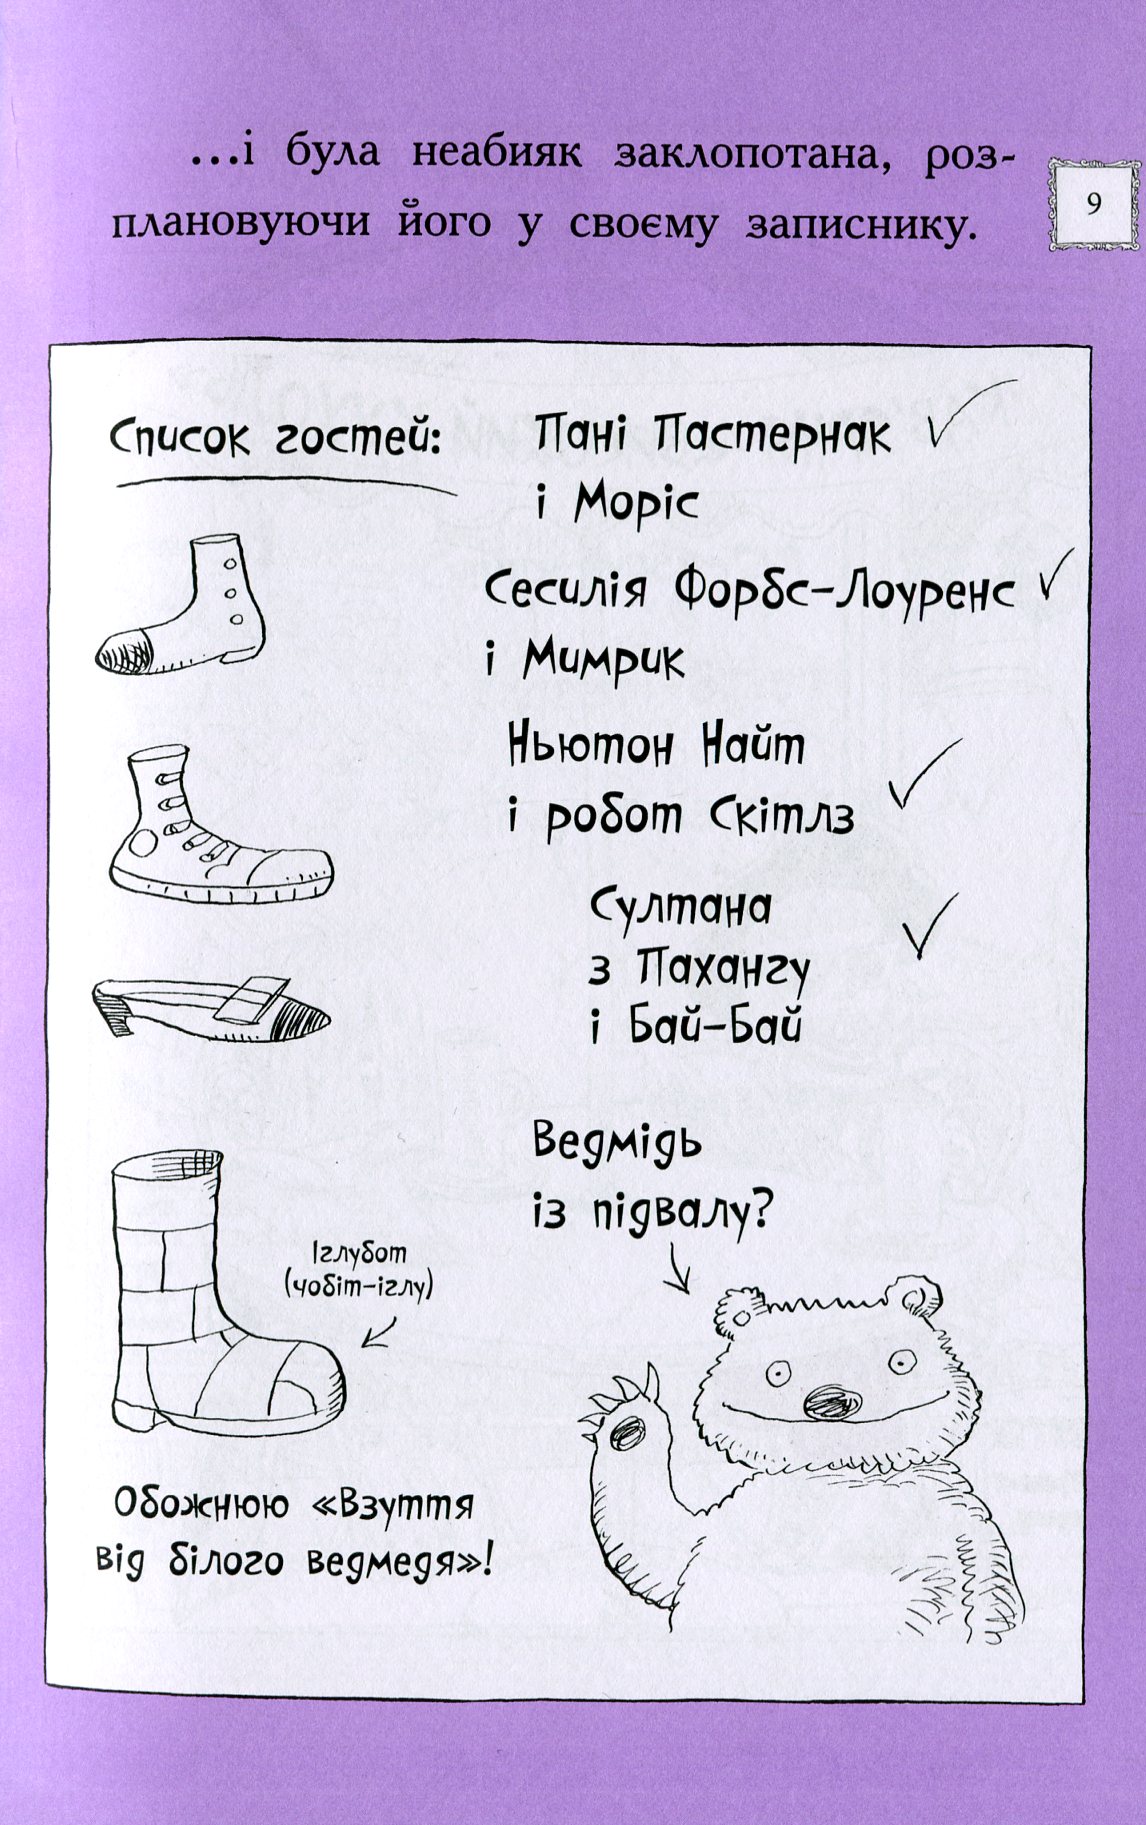 ...і була неабияк заклопотана, роз-
плановуючи його у своєму записнику.
9
Список гостей:
Пані Пастернак
і Моріс
Сесилія Форбс-Лоуренс
і Мимрик
Ньютон Найт
і робот Скітлз
Султана
з Пахангу
і Бай-Бай
Ведмідь
із підвалу?
Іглубот
(чобіт-іглу)
Обожнюю «Взуття
від білого ведмедя»!